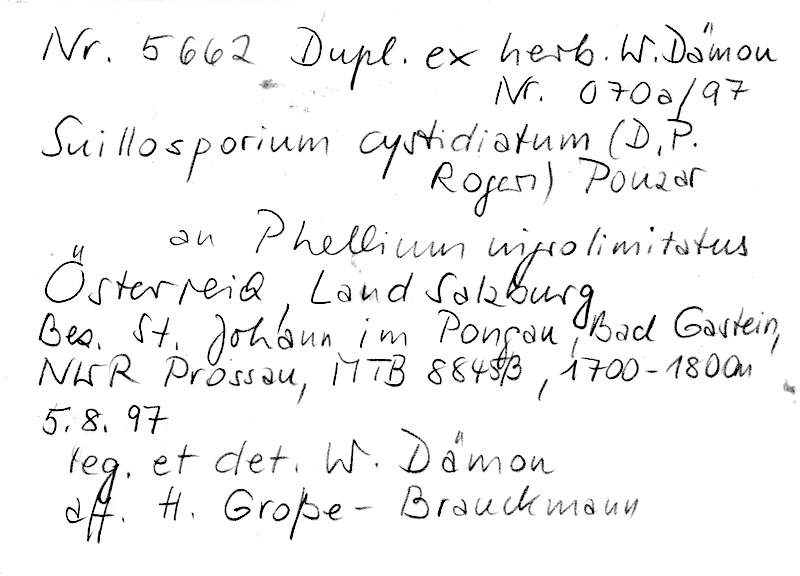 Nr. 5662 Dupl. ex herb. W. Dämon
Nr. 070a/97
Suillosporium cystidiatum (D.P.
Rogers) Pouzar
an Phellinus nigrolimitatus
Österreich, Land Salzburg
Bez. St. Johann im Pongau, Bad Gastein,
NWR Prossau, MTB 8845/3, 1700-1800m
5.8.97
leg. et det. W. Dämon
aff. H. Große-Brauckmann